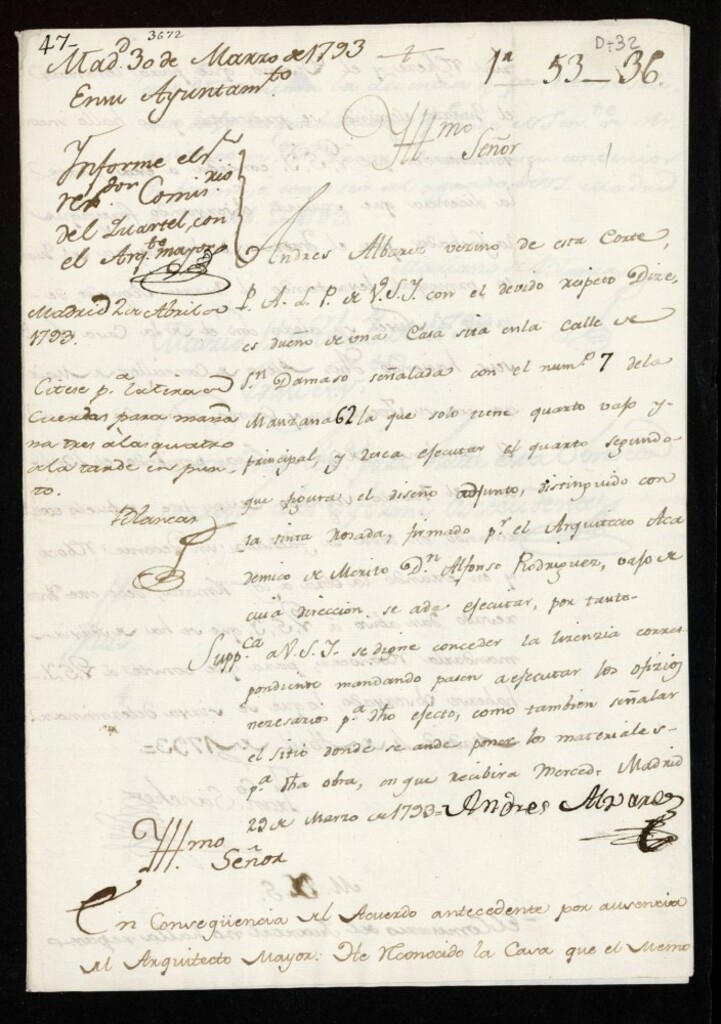 47-
3672
D-32
1ª 53-36.
Madᵈ 30 de Marzo de 1793
En su Ayuntamᵗᵒ
Informe el sʳ
rexᵈᵒʳ Comisʳⁱᵒ
del Quartel, con
el Arqᵗᵒ mayor
Madrid 2 de Abril de
1793.
Citese pª la tira de
Cuerdas para maña
na tres à las quatro
de la tarde en pun
to.
Blancas
Yllᵐᵒ
Señor
Andres Albarez vezino de esta Corte,
P. A. L. P. de V.S.I. con el devido respeto Dize,
es dueño de una Casa sita en la calle de
Sⁿ Damaso señalada con el numº 7 de la
Manzana 62 la que solo tiene quarto vajo y
principal, y desea ejecutar el quarto segundo
que figura el diseño adjunto, distinguido con
la tinta Rosada, firmado pʳ el Arquitecto Aca
demico de Merito Dⁿ Alfonso Rodriguez, vajo de
cuia direccion se a de ejecutar, por tanto
Suppᶜᵃ a V.S.I. se digne conceder la lizenzia corres
pondiente mandando pasen a efecutar los ofizios
nezesarios pª dho efecto, como tambien señalar
el sitio donde se ande poner los materiales
pª dha obra, en que recibira Merced. Madrid
29 de Marzo de 1793= Andres Alvarez
Yllᵐᵒ
Señor
En Conseqüencia del Acuerdo antecedente por ausencia
del Arquitecto Mayor: He Rconocido la Casa que el Memo